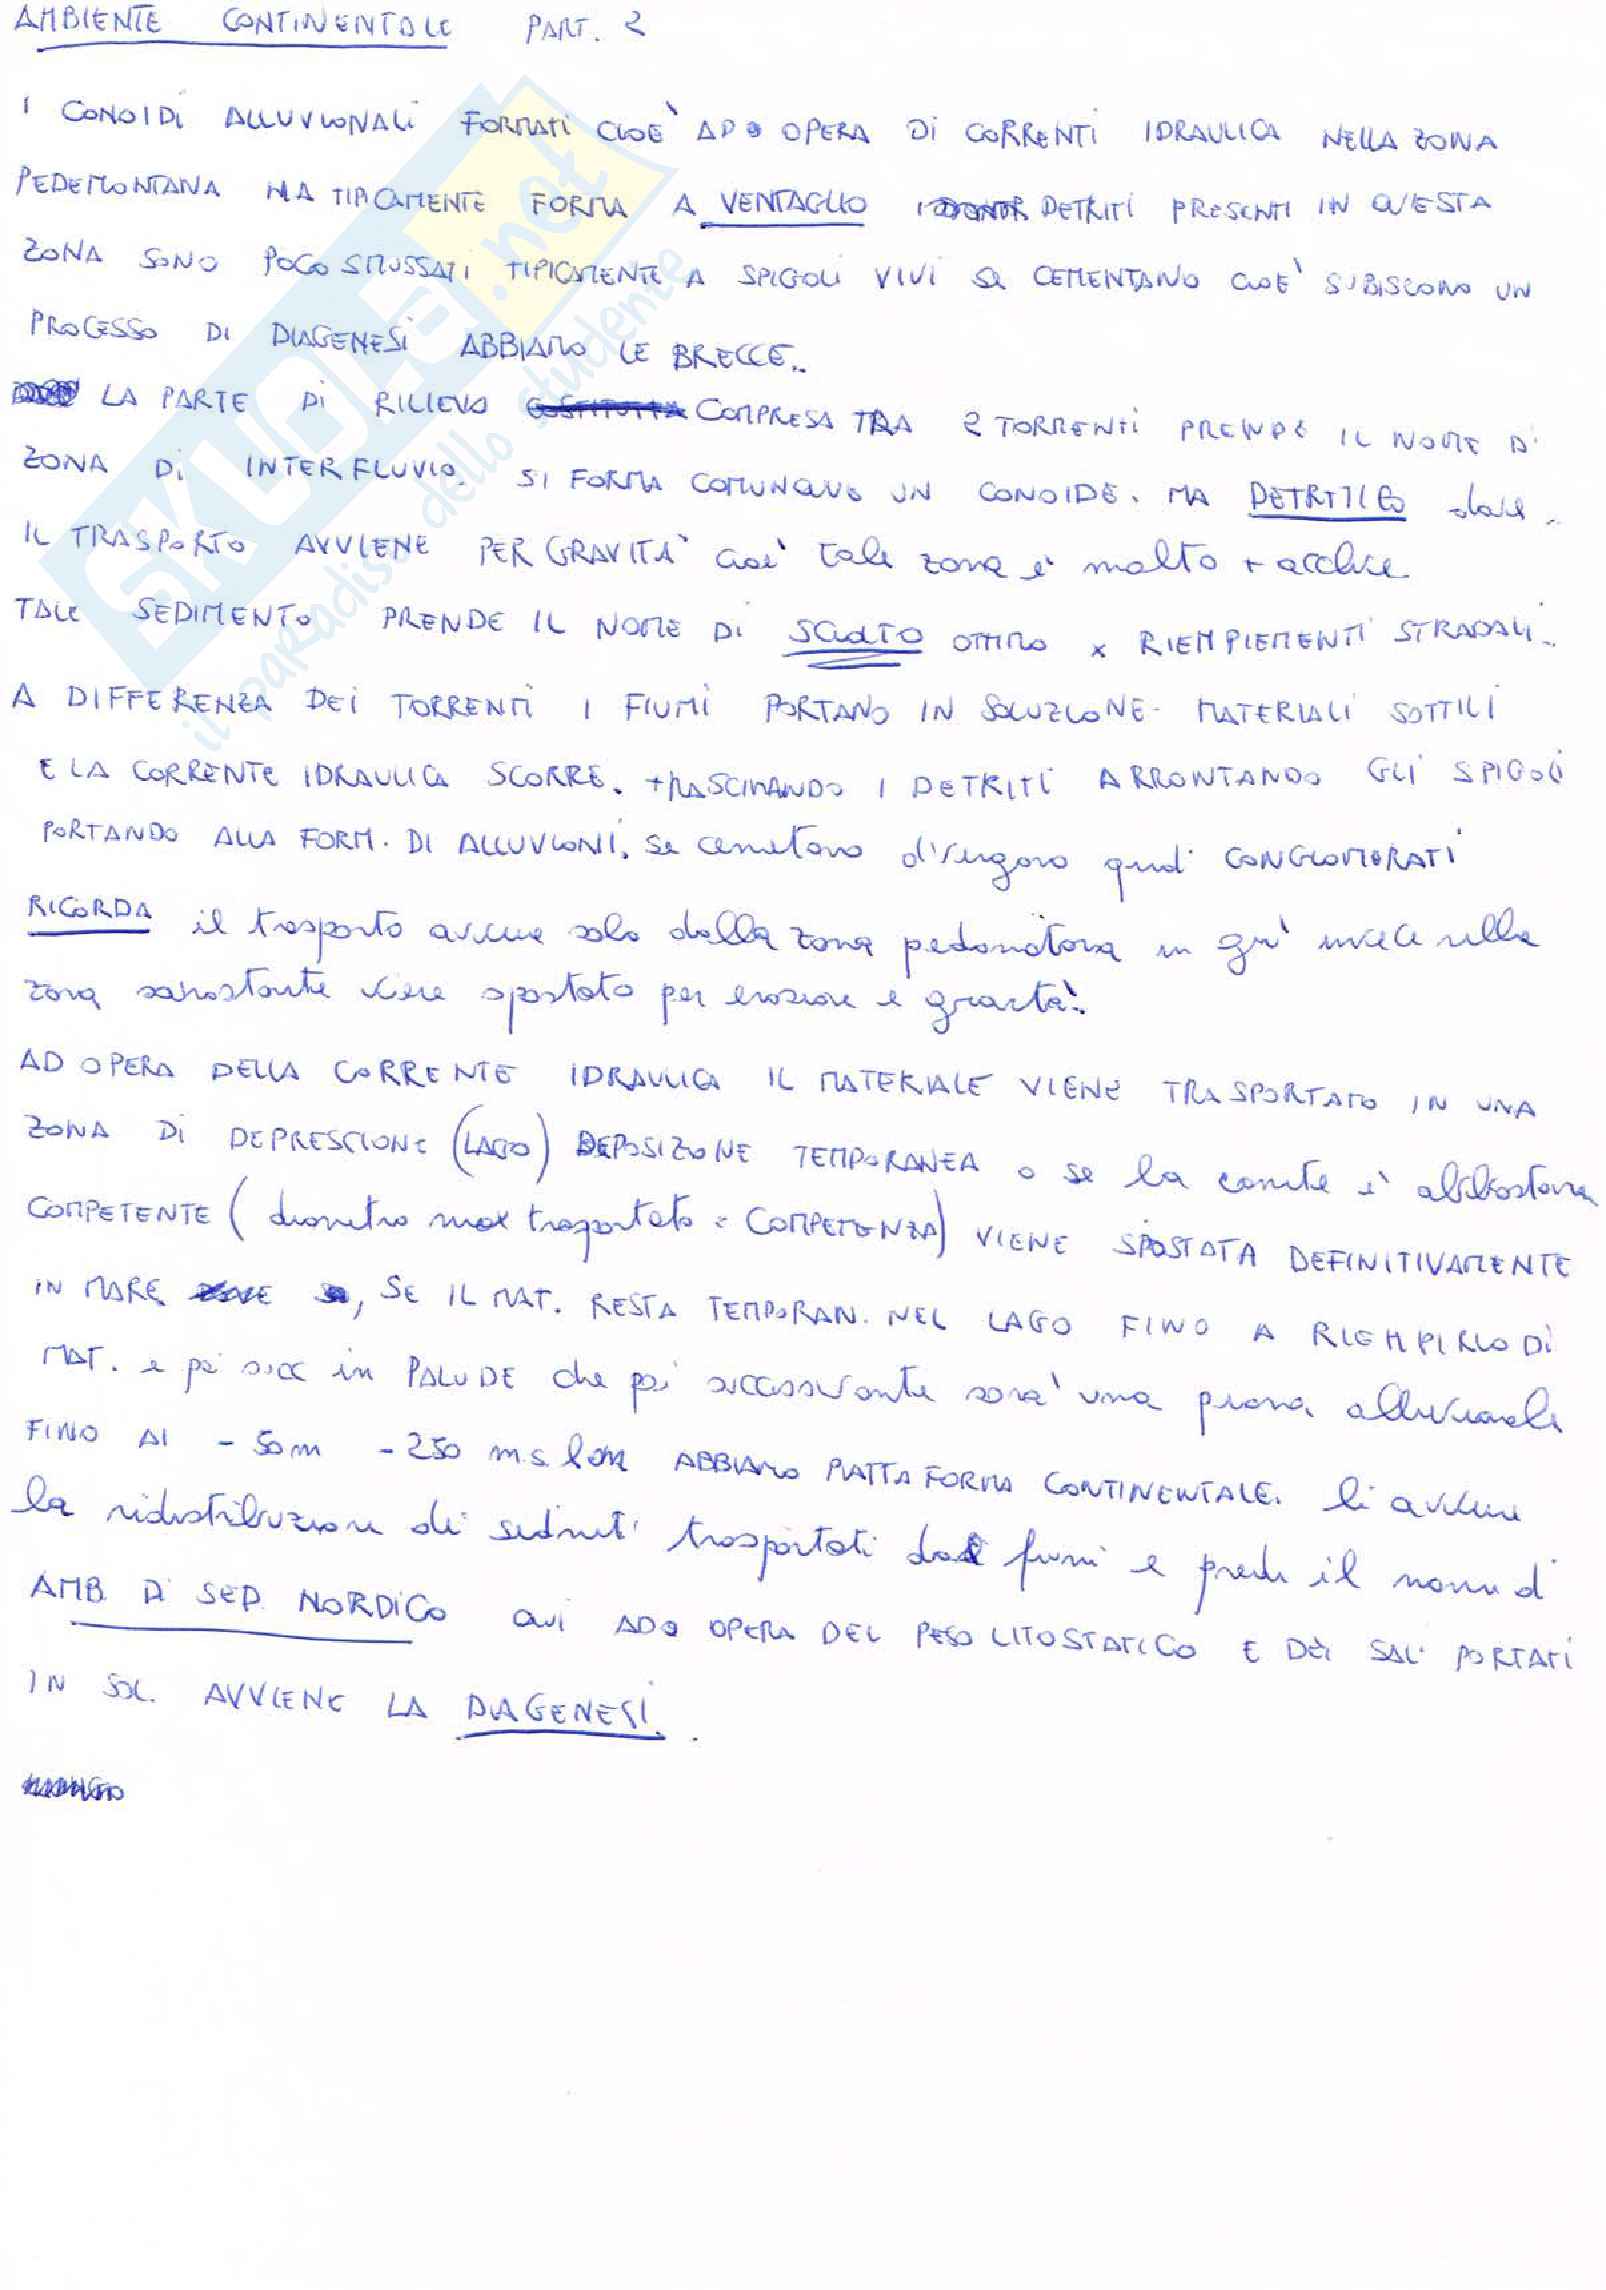 AMBIENTE CONTINENTALE PART. 2
I CONOIDI ALLUVIONALI FORMATI CIOE' AD OPERA DI CORRENTI IDRAULICA NELLA ZONA
PEDEMONTANA HA TIPICAMENTE FORMA A VENTAGLIO I DETRITI PRESENTI IN QUESTA
ZONA SONO POCO SMUSSATI TIPICAMENTE A SPIGOLI VIVI SE CEMENTANO CIOE' SUBISCONO UN
PROCESSO DI DIAGENESI ABBIAMO LE BRECCE..
LA PARTE DI RILIEVO COMPRESA TRA 2 TORRENTI PRENDE IL NOME DI
ZONA DI INTERFLUVIO. SI FORMA COMUNQUE UN CONOIDE. MA DETRITICO dove..
IL TRASPORTO AVVIENE PER GRAVITA' cioe' tale zona e' molto + acclive
TALE SEDIMENTO PRENDE IL NOME DI SCIOLTO OTTIMO x RIEMPIEMENTI STRADALI..
A DIFFERENZA DEI TORRENTI I FIUMI PORTANO IN SOLUZIONE- MATERIALI SOTTILI
E LA CORRENTE IDRAULICA SCORRE. TRASCINANDO I DETRITI ARRONTANDO GLI SPIGOLI
PORTANDO ALLA FORM. DI ALLUVIONI. Se cementano divengono quindi CONGLOMERATI
RICORDA il trasporto avviene solo dalla zona pedemontana in giu' invece nella
zona sovrastante viene spostato per erosione e gravita'.
AD OPERA DELLA CORRENTE IDRAULICA IL MATERIALE VIENE TRASPORTATO IN UNA
ZONA DI DEPRESSIONE (LAGO) DEPOSIZIONE TEMPORANEA o se la corrente e' abbastanza
COMPETENTE (diametro max trasportato = COMPETENZA) VIENE SPOSTATA DEFINITIVAMENTE
IN MARE, SE IL MAT. RESTA TEMPORAN. NEL LAGO FINO A RIEMPIRLO DI
MAT. e poi in PALUDE che poi successivamente sara' una piana alluvionale
FINO AI - 50m - 250 m s.l.m ABBIAMO PIATTAFORMA CONTINENTALE. li avviene
la ridistribuzione dei sedimenti trasportati dai fiumi e prende il nome di
AMB. DI SED. NORDICO QUI ADO OPERA DEL PESO LITOSTATICO E DEI SALI PORTATI
IN SOL. AVVIENE LA DIAGENESI.
SKUOLA.net
il paradiso dello studente